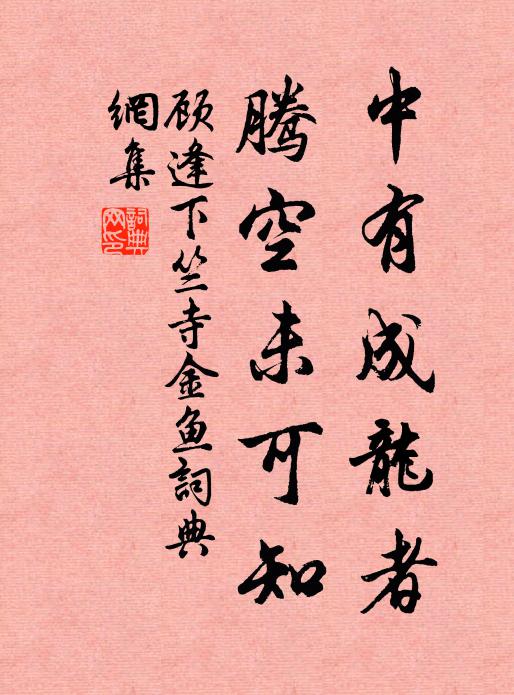 中有成龍者
騰空未可知
顾逢下竺寺金鱼詞典
網集
詞典
网印